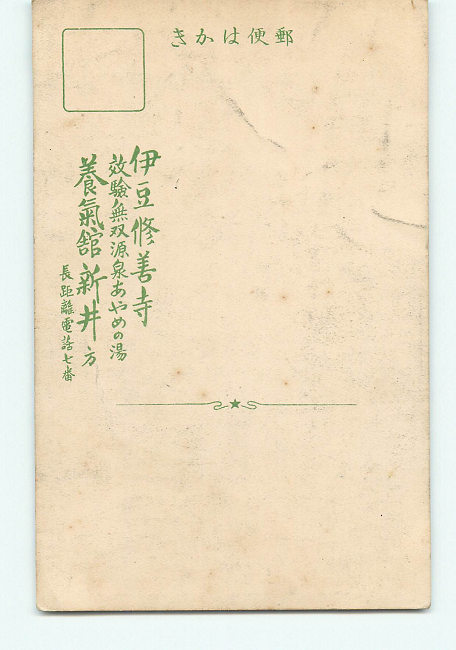 きかは便郵
伊豆修善寺
效驗無双源泉あやめの湯
養氣舘新井方
長距離電話七番